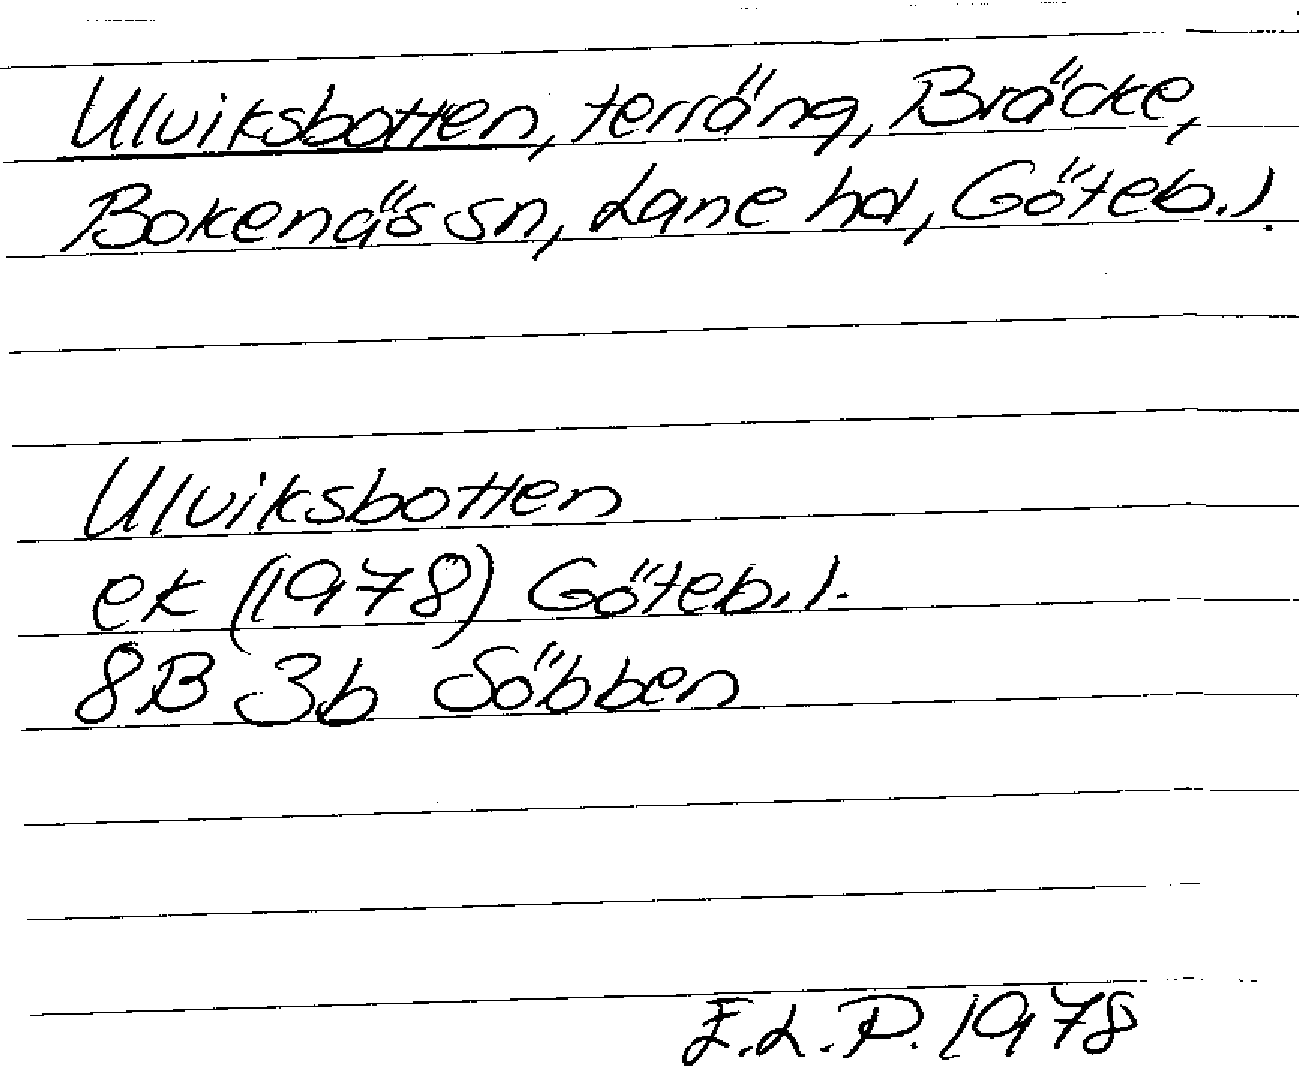 Ulviksbotten, terräng, Bräcke,
Bokenäs sn, Lane hd, Göteb. l.
Ulviksbotten
ek (1978) Göteb. l.
8B 3b Söbben
E.L.P. 1978